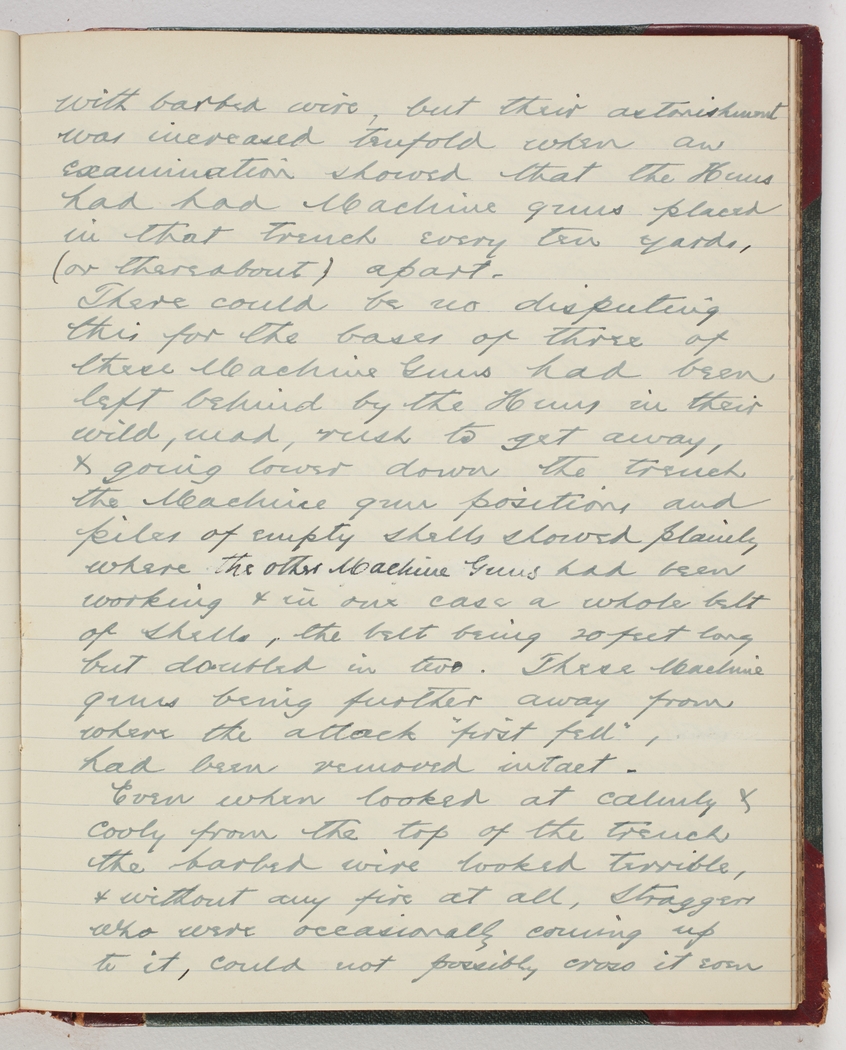 with barbed wire, but their astonishment
was increased tenfold when an
examination showed that the Huns
had had Machine guns placed
in that trench every ten yards,
(or thereabout) apart.
There could be no disputing
this for the bases of three of
these Machine Guns had been
left behind by the Huns in their
wild, mad, rush to get away,
& going lower down the trench
the Machine gun positions and
piles of empty shells showed plainly
where the other Machine Guns had been
working & in one case a whole belt
of shells, the belt being 20 feet long
but doubled in two. These Machine
guns being further away from
where the attack "first fell",
had been removed intact.
Even when looked at calmly &
cooly from the top of the trench
the barbed wire looked terrible,
& without any fire at all, Straggers
who were occasionally coming up
to it, could not possibly cross it even